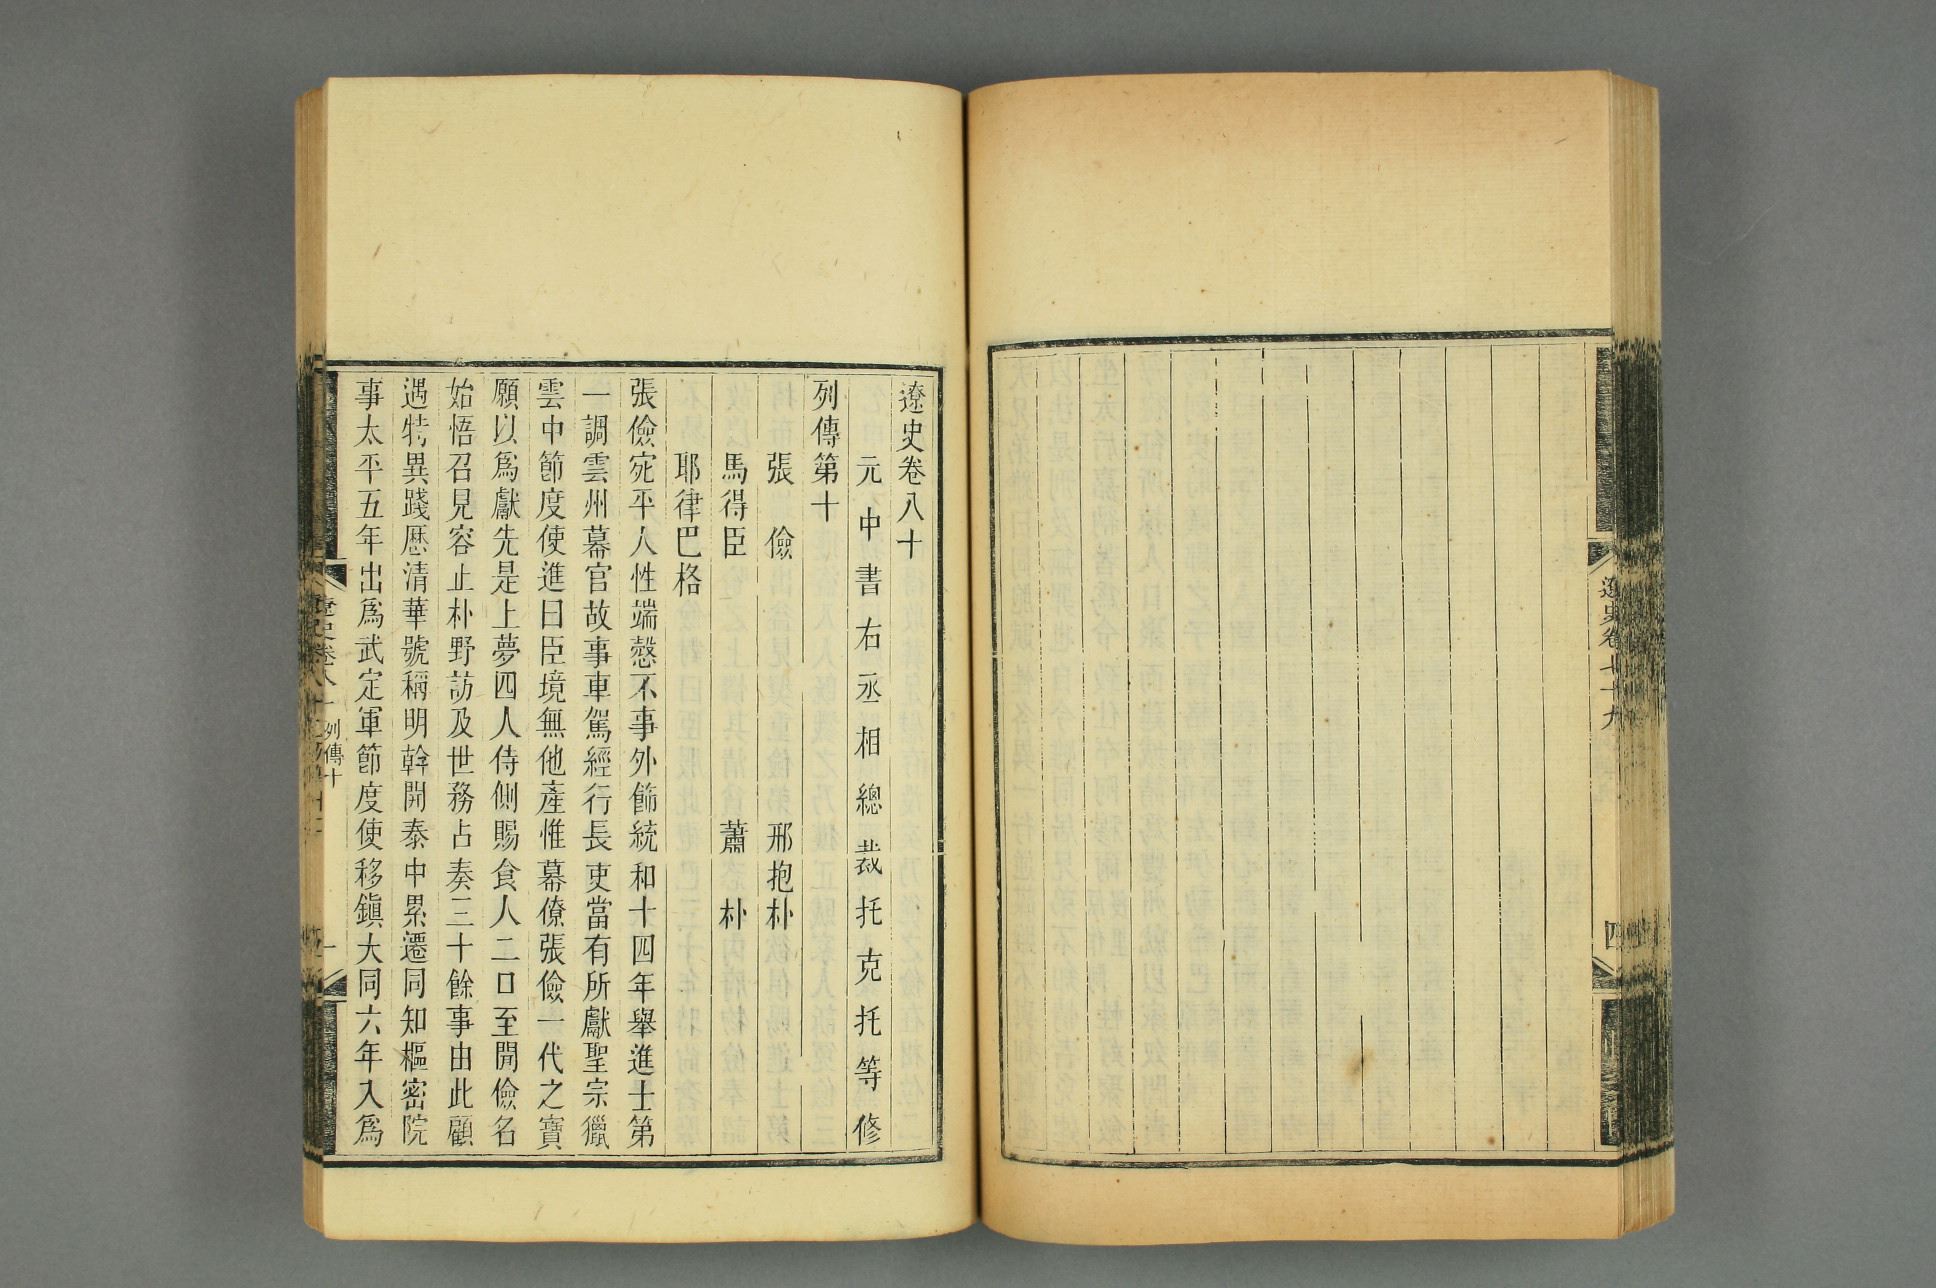 遼史卷七十九
四
遼史卷八十
元中書右丞相總裁托克托等修
列傳第十
張儉 邢抱朴
馬得臣 蕭朴
耶律巴格
張儉宛平人性端慤不事外飾統和十四年舉進士第
一調雲州幕官故事車駕經行長吏當有所獻聖宗獵
雲中節度使進曰臣境無他產惟幕僚張儉一代之寶
願以爲獻先是上夢四人侍側賜食人二口至聞儉名
始悟召見容止朴野訪及世務占奏三十餘事由此顧
遇特異踐歷清華號稱明幹開泰中累遷同知樞密院
事太平五年出爲武定軍節度使移鎭大同六年入爲
遼史卷八十 列傳十
一